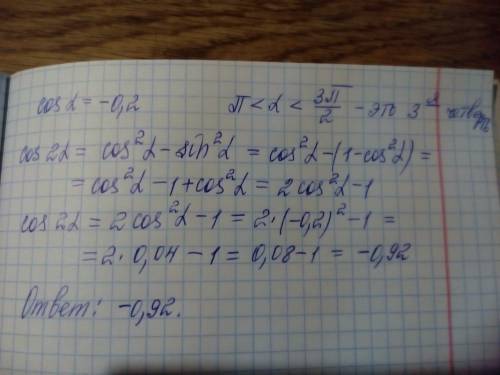 cos α = -0,2 π < α < 3π/2 - это 3 я четверть
cos 2α = cos²α - sin²α = cos²α - (1 - cos²α) =
= cos²α - 1 + cos²α = 2 cos²α - 1
cos 2α = 2 cos²α - 1 = 2 · (-0,2)² - 1 =
= 2 · 0,04 - 1 = 0,08 - 1 = -0,92
Ответ: -0,92.